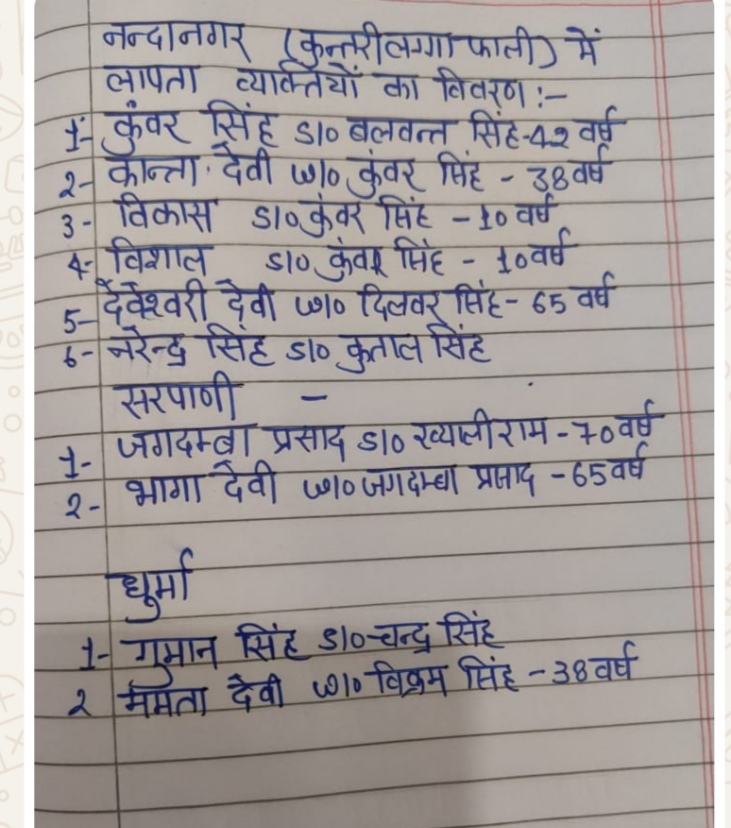 नन्दानगर (कुन्तरीलग्गा फाली) में
लापता व्यक्तियों का विवरण :-
1- कुंवर सिंह S/o बलवन्त सिंह-42 वर्ष
2- कान्ता देवी W/o कुंवर सिंह - 38 वर्ष
3- विकास S/o कुंवर सिंह - 10 वर्ष
4- विशाल S/o कुंवर सिंह - 10 वर्ष
5- देवेश्वरी देवी W/o दिलवर सिंह- 65 वर्ष
6- नरेन्द्र सिंह S/o कुताल सिंह
सरपाणी -
1- जगदम्बा प्रसाद S/o ख्यालीराम - 70 वर्ष
2- भागा देवी W/o जगदम्बा प्रसाद - 65 वर्ष
धुर्मा
1- गुमान सिंह S/o चन्द्र सिंह
2 ममता देवी W/o विक्रम सिंह - 38 वर्ष